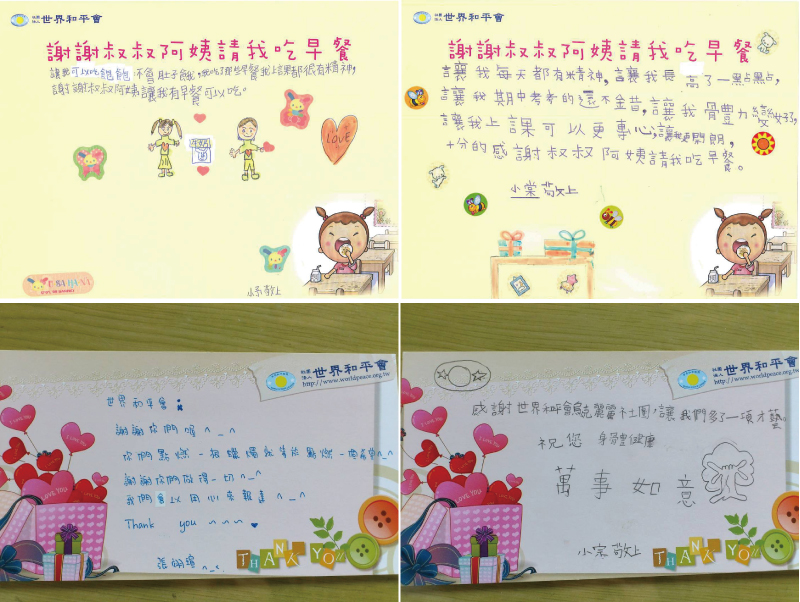 社團法人 世界和平會
謝謝叔叔阿姨請我吃早餐
讓我可以吃飽飽不會肚子餓,我吃了那些早餐我上課都很有精神,
謝謝叔叔阿姨讓我有早餐可以吃。
Love
小宗敬上
社團法人 世界和平會
謝謝叔叔阿姨請我吃早餐
讓我每天都有精神,讓我長高了一點點,
讓我期中考考的還不錯,讓我骨體力變好了,
讓我上課可以更專心,讓我更開朗,
十分的感謝叔叔阿姨請我吃早餐。
小棠敬上
社團法人 世界和平會
http://www.worldpeace.org.tw
世界和平會:
謝謝你們喔^_^
謝謝你們做得一切^_^
我們會以用心來報達^_^
Thank you ~~~
I LOVE YOU
THANK YOU
社團法人 世界和平會
http://www.worldpeace.org.tw
感謝世界和平會烏克麗麗社團,讓我們多了一項才藝。
祝您 身體健康
萬事如意
小宗敬上
I LOVE YOU
THANK YOU